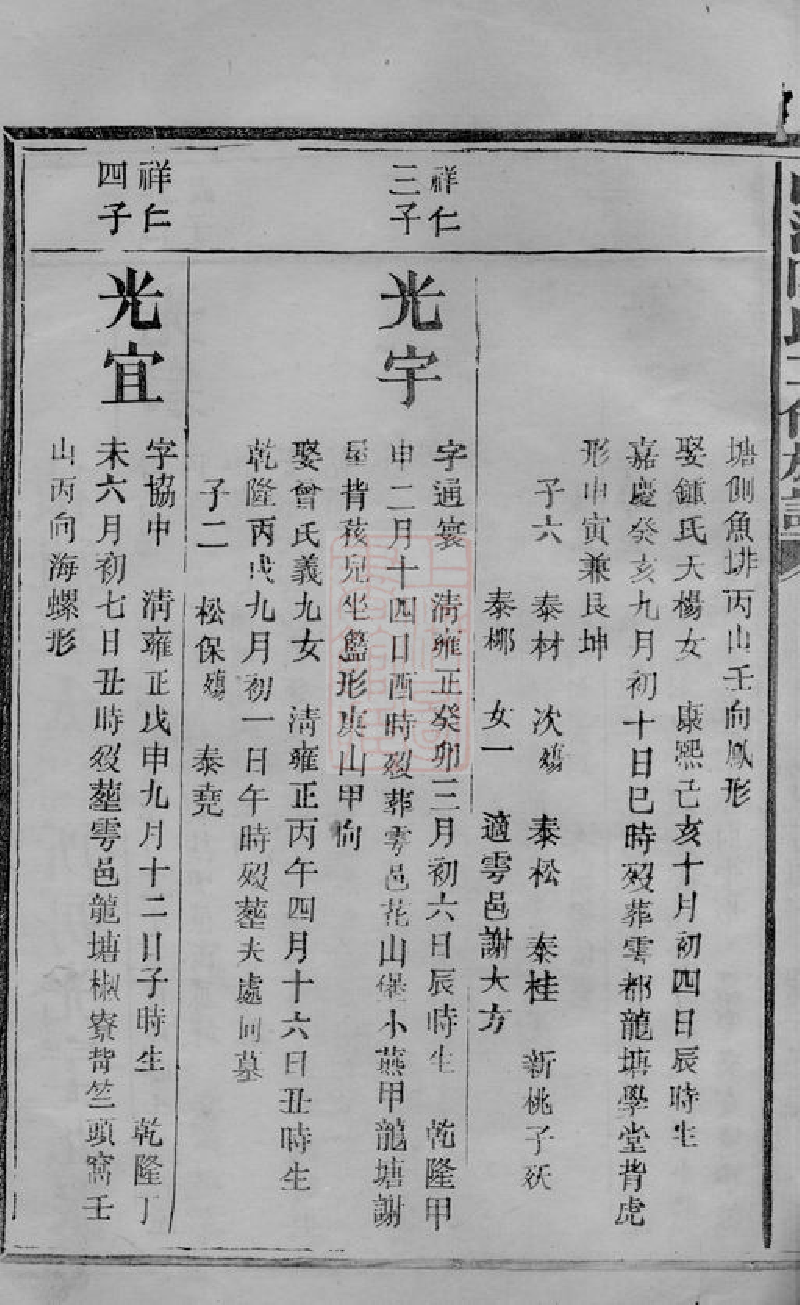 塘側魚坢丙山壬向鳳形
娶鍾氏大楊女　康熙己亥十月初四日辰時生
嘉慶癸亥九月初十日巳時歿葬雩都龍塘學堂背虎
形申寅兼艮坤
子六　泰材　次殤　泰松　泰桂　新桃子殀
泰梛　女一　適雩邑謝大方
祥仁
三子
光宇
字通寰　清雍正癸卯三月初六日辰時生　乾隆甲
申二月十四日酉時歿葬雩邑花山堡小燕甲龍塘謝
屋背孩兒坐籃形庚山甲向
娶曾氏義九女　清雍正丙午四月十六日丑時生
乾隆丙戌九月初一日午時歿塟夫處同墓
子二　松保殤　泰堯
祥仁
四子
光宜
字協中　清雍正戊申九月十二日子時生　乾隆丁
未六月初七日丑時歿塟雩邑龍塘椒寮背竺頭窩壬
山丙向海螺形